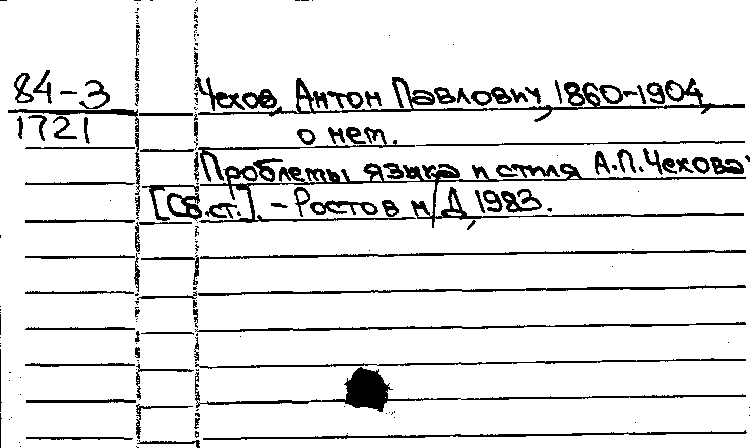 84-3 Чехов, Антон Павлович, 1860-1904,
1721 о нем.
Проблемы языка и стиля А.П.Чехова
[Сб.ст.]. - Ростов н/Д, 1983.